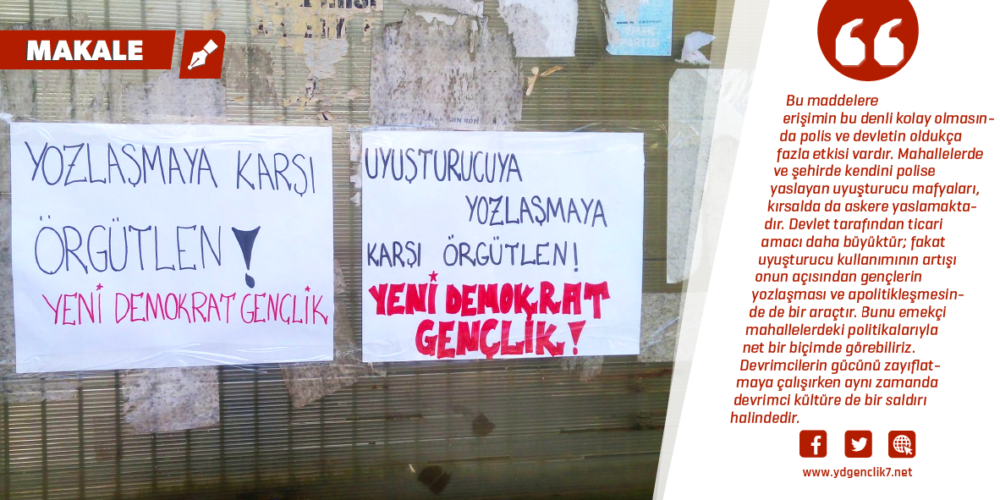 MAKALE
YOZLAŞMAYA KARŞI
ÖRGÜTLEN!
YENİ DEMOKRAT GENÇLİK
UYUŞTURUCUYA
YOZLAŞMAYA
KARŞI ÖRGÜTLEN!
YENİ DEMOKRAT
GENÇLİK!
Bu maddelere
erişimin bu denli kolay olmasın-
da polis ve devletin oldukça
fazla etkisi vardır. Mahallelerde
ve şehirde kendini polise
yaslayan uyuşturucu mafyaları,
kırsalda da askere yaslamakta-
dır. Devlet tarafından ticari
amacı daha büyüktür; fakat
uyuşturucu kullanımının artışı
onun açısından gençlerin
yozlaşması ve apolitikleşmesin-
de de bir araçtır. Bunu emekçi
mahallelerdeki politikalarıyla
net bir biçimde görebiliriz.
Devrimcilerin gücünü zayıflat-
maya çalışırken aynı zamanda
devrimci kültüre de bir saldırı
halindedir.
www.ydgenclik7.net